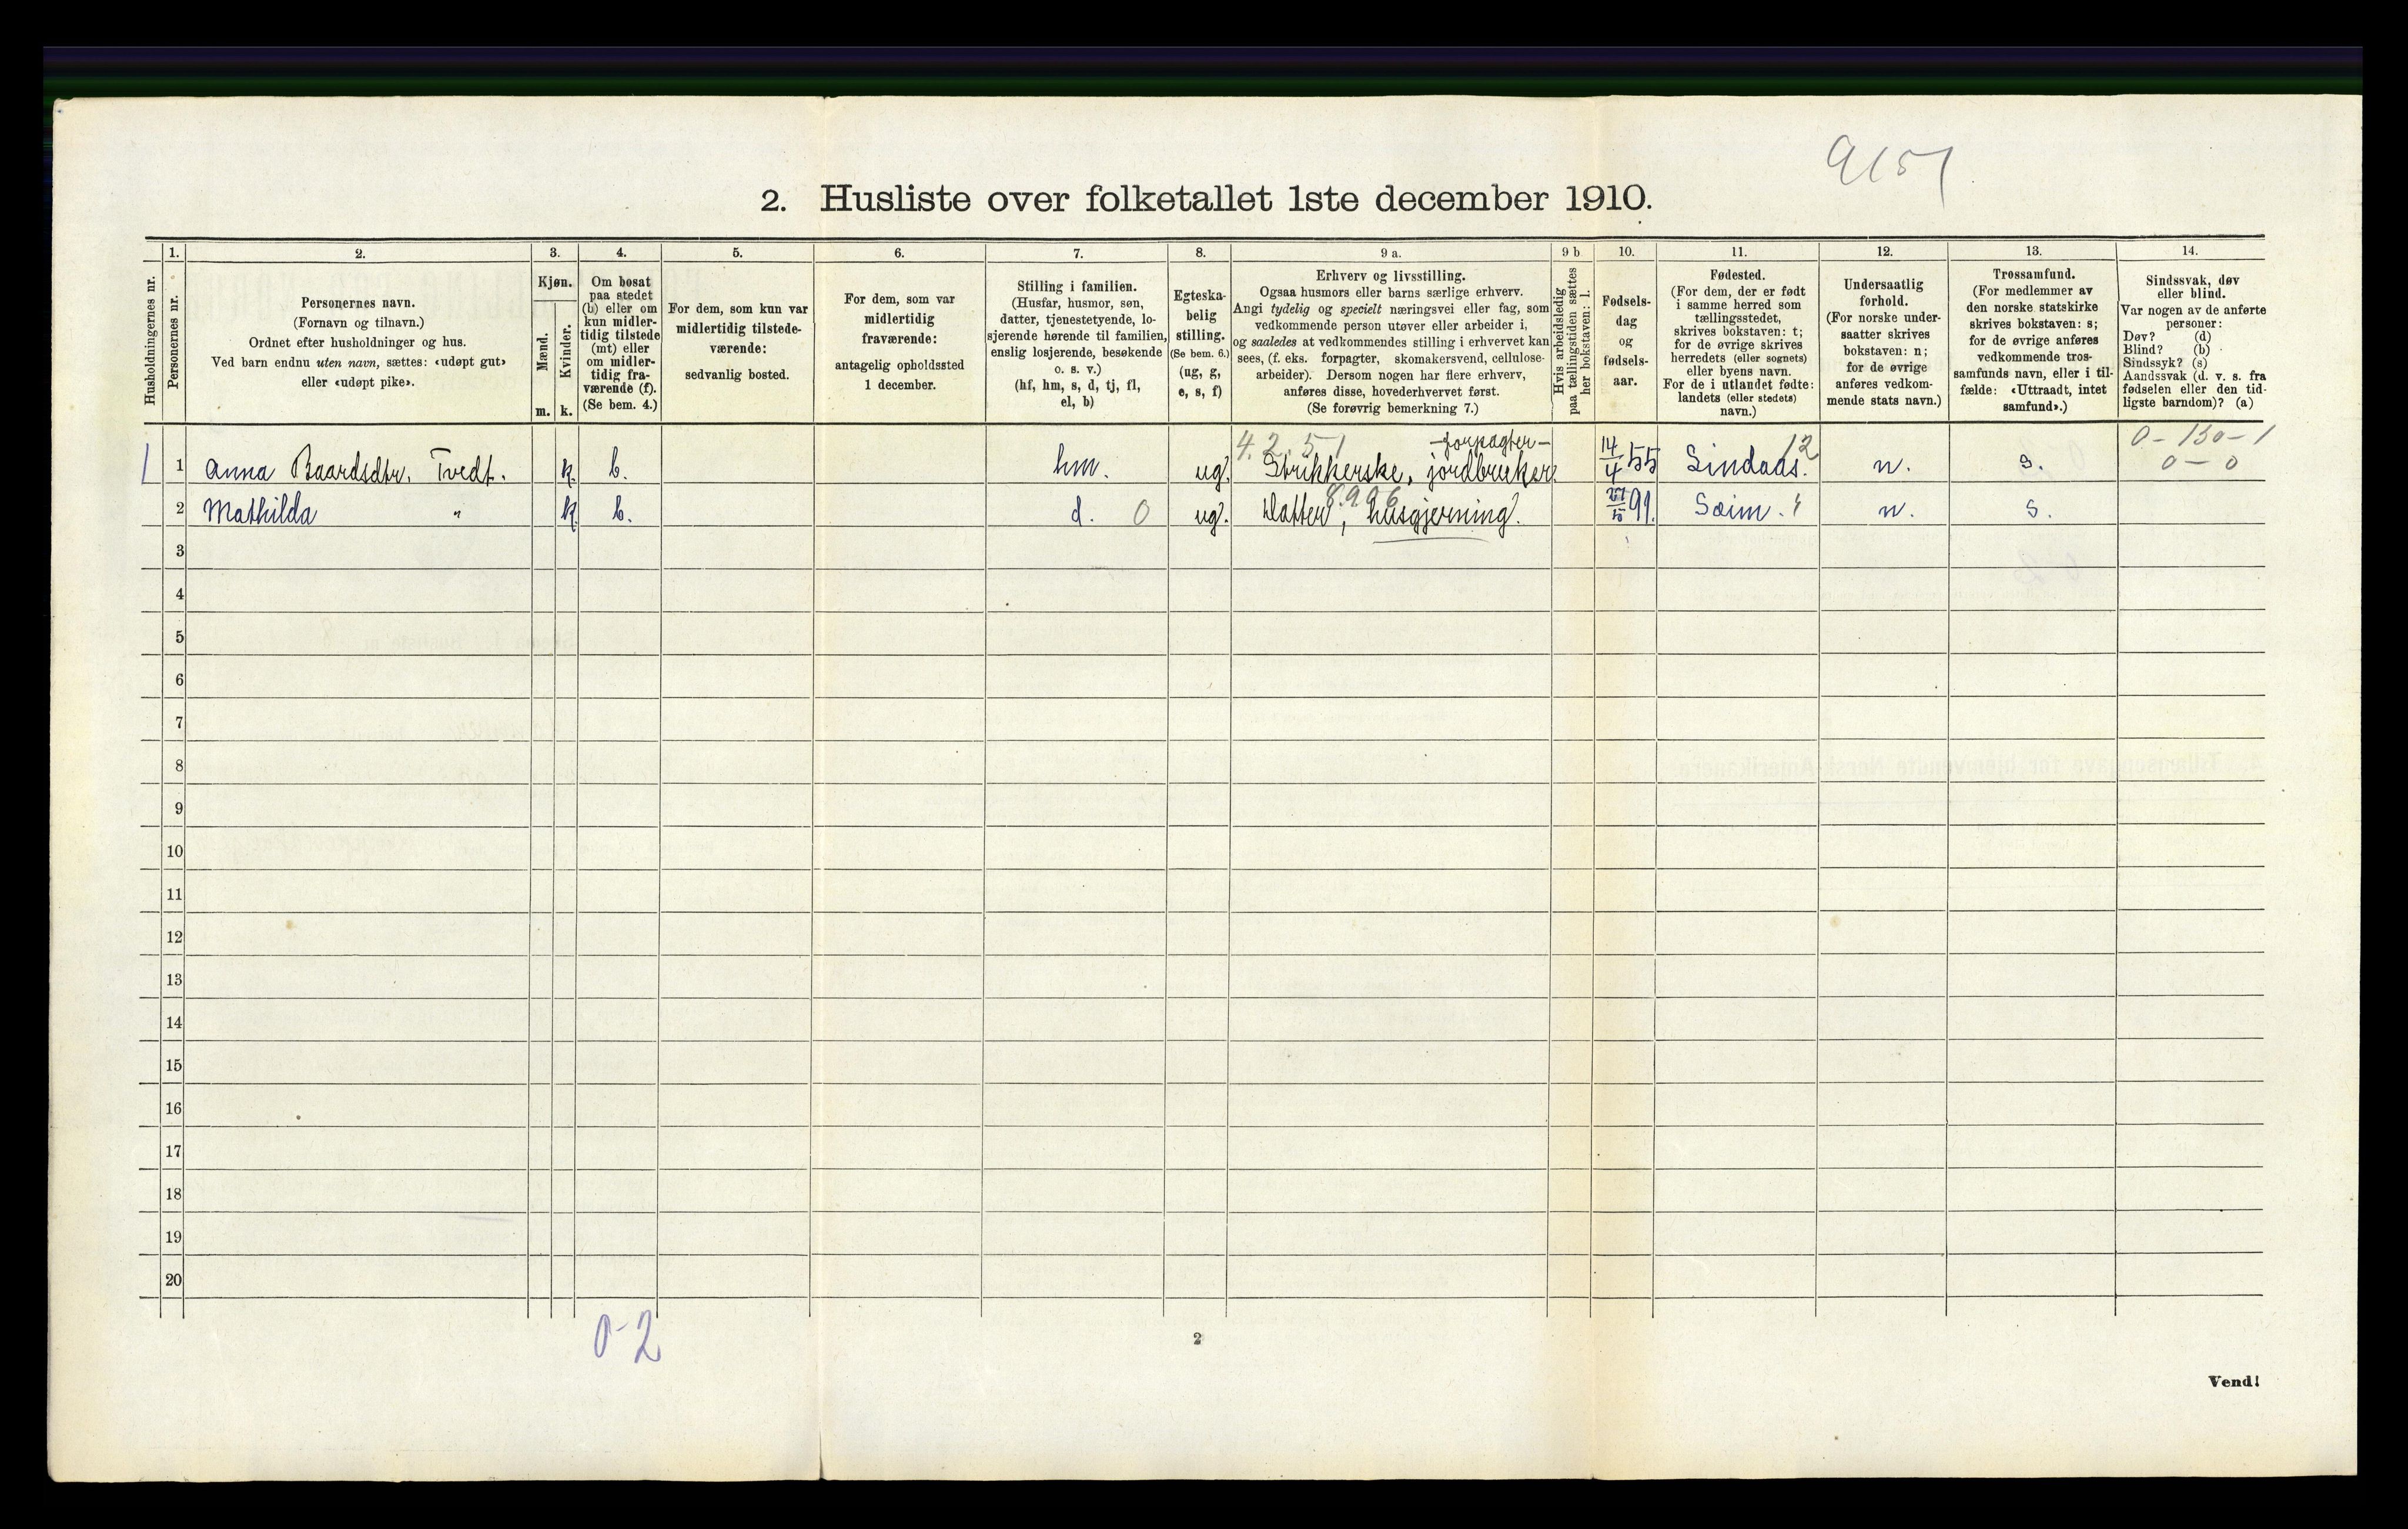 9151
2. Husliste over folketallet 1ste december 1910.
Husholdningernes nr.
1.
Personernes nr.
2.
Personernes navn.
(Fornavn og tilnavn.)
Ordnet efter husholdninger og hus.
Ved barn endnu uten navn, sættes: «udøpt gut»
eller «udøpt pike».
3.
Kjøn.
Mænd.
Kvinder.
m. k.
4.
Om bosat
paa stedet
(b) eller om
kun midler-
tidig tilstede
(mt) eller
om midler-
tidig fra-
værende (f).
(Se bem. 4.)
5.
For dem, som kun var
midlertidig tilstede-
værende:
sedvanlig bosted.
6.
For dem, som var
midlertidig
fraværende:
antagelig opholdssted
1 december.
7.
Stilling i familien.
(Husfar, husmor, søn,
datter, tjenestetyende, lo-
sjerende hørende til familien,
enslig losjerende, besøkende
o. s. v.)
(hf, hm, s, d, tj, fl,
el, b)
8.
Egteska-
belig
stilling.
(Se bem. 6.)
(ug, g,
e, s, f)
9 a.
Erhverv og livsstilling.
Ogsaa husmors eller barns særlige erhverv.
Angi tydelig og specielt næringsvei eller fag, som
vedkommende person utøver eller arbeider i,
og saaledes at vedkommendes stilling i erhvervet kan
sees, (f. eks. forpagter, skomakersvend, cellulose-
arbeider). Dersom nogen har flere erhverv,
anføres disse, hovederhvervet først.
(Se forøvrig bemerkning 7.)
9 b
Hvis arbeidsledig
paa tællingstiden sættes
her bokstaven: l.
10.
Fødsels-
dag
og
fødsels-
aar.
11.
Fødested.
(For dem, der er født
i samme herred som
tællingsstedet,
skrives bokstaven: t;
for de øvrige skrives
herredets (eller sognets)
eller byens navn.
For de i utlandet fødte:
landets (eller stedets)
navn.)
12.
Undersaatlig
forhold.
(For norske under-
saatter skrives
bokstaven: n;
for de øvrige
anføres vedkom-
mende stats navn.)
13.
Trossamfund.
(For medlemmer av
den norske statskirke
skrives bokstaven: s;
for de øvrige anføres
vedkommende tros-
samfunds navn, eller i til-
fælde: «Uttraadt, intet
samfund».)
14.
Sindssvak, døv
eller blind.
Var nogen av de anførte
personer:
Døv? (d)
Blind? (b)
Sindssyk? (s)
Aandssvak (d. v. s. fra
fødselen eller den tid-
ligste barndom)? (a)
4.2.51 -forpagter- 12 0-130-1
1 1 Anna Baardsdtr. Tvedt. k. b. hm. ug. Strikkerske, jordbruker. 14/4 55 Lindaas. n. s. 0-0
8.996
2 Mathilda " k b. d. 0 ug. Datter, husgjerning. 91. Sæim. n. s.
3
4
5
6
7
8
9
10
11
12
13
14
15
16
17
18
19
20
0-2
2
Vend!